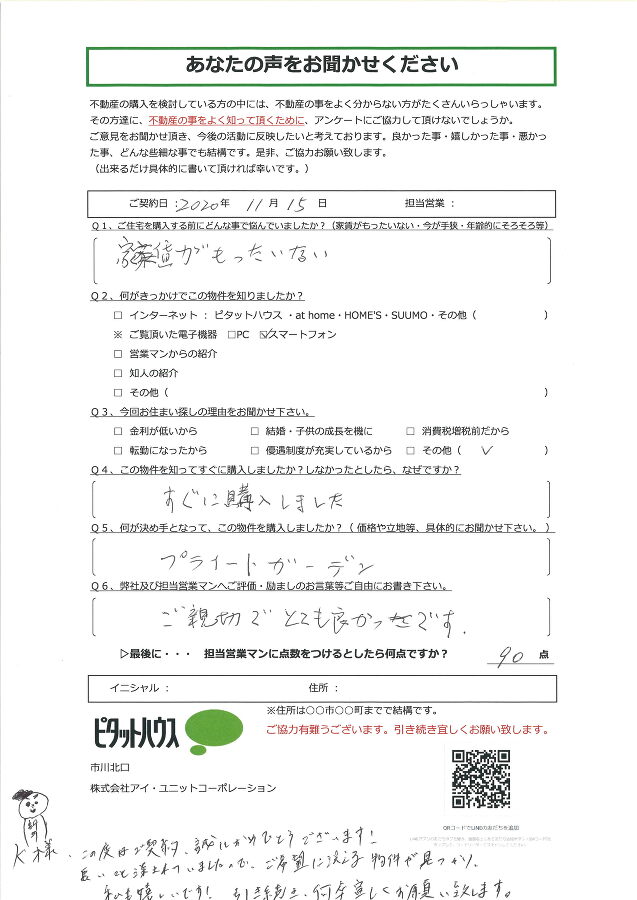 あなたの声をお聞かせください
不動産の購入を検討している方の中には、不動産の事をよく分からない方がたくさんいらっしゃいます。
その方達に、不動産の事をよく知って頂くために、アンケートにご協力して頂けないでしょうか。
ご意見をお聞かせ頂き、今後の活動に反映したいと考えております。良かった事・嬉しかった事・悪かっ
た事、どんな些細な事でも結構です。是非、ご協力お願い致します。
（出来るだけ具体的に書いて頂ければ幸いです。）
ご契約日：2020年 11月 15日 担当営業：
Q１、ご住宅を購入する前にどんな事で悩んでいましたか？（家賃がもったいない・今が手狭・年齢的にそろそろ等）
家賃がもったいない
Q２、何がきっかけでこの物件を知りましたか？
□ インターネット ： ピタットハウス ・at home・HOME'S・SUUMO・その他（ ）
※ ご覧頂いた電子機器 □PC ☑スマートフォン
□ 営業マンからの紹介
□ 知人の紹介
□ その他（ ）
Q３、今回お住まい探しの理由をお聞かせ下さい。
□ 金利が低いから □ 結婚・子供の成長を機に □ 消費税増税前だから
□ 転勤になったから □ 優遇制度が充実しているから □ その他（ ✓ ）
Q４、この物件を知ってすぐに購入しましたか？しなかったとしたら、なぜですか？
すぐに購入しました
Q５、何が決め手となって、この物件を購入しましたか？（ 価格や立地等、具体的にお聞かせ下さい。）
プライートガーデン
Q６、弊社及び担当営業マンへご評価・励ましのお言葉等ご自由にお書き下さい。
ご親切でとても良かったです.
▷最後に・・・ 担当営業マンに点数をつけるとしたら何点ですか？ 90 点
イニシャル： 住所：
※住所は〇〇市〇〇町までで結構です。
ピタットハウス
ご協力有難うございます。引き続き宜しくお願い致します。
市川北口
株式会社アイ・ユニットコーポレーション
QRコードでLINEの友だちを追加
K様、この度はご契約、誠におめでとうございます!
良い 、ご希望に 物件が見つかり、
私も嬉しいです! 引き続き、何卒宜しくお願い致します。